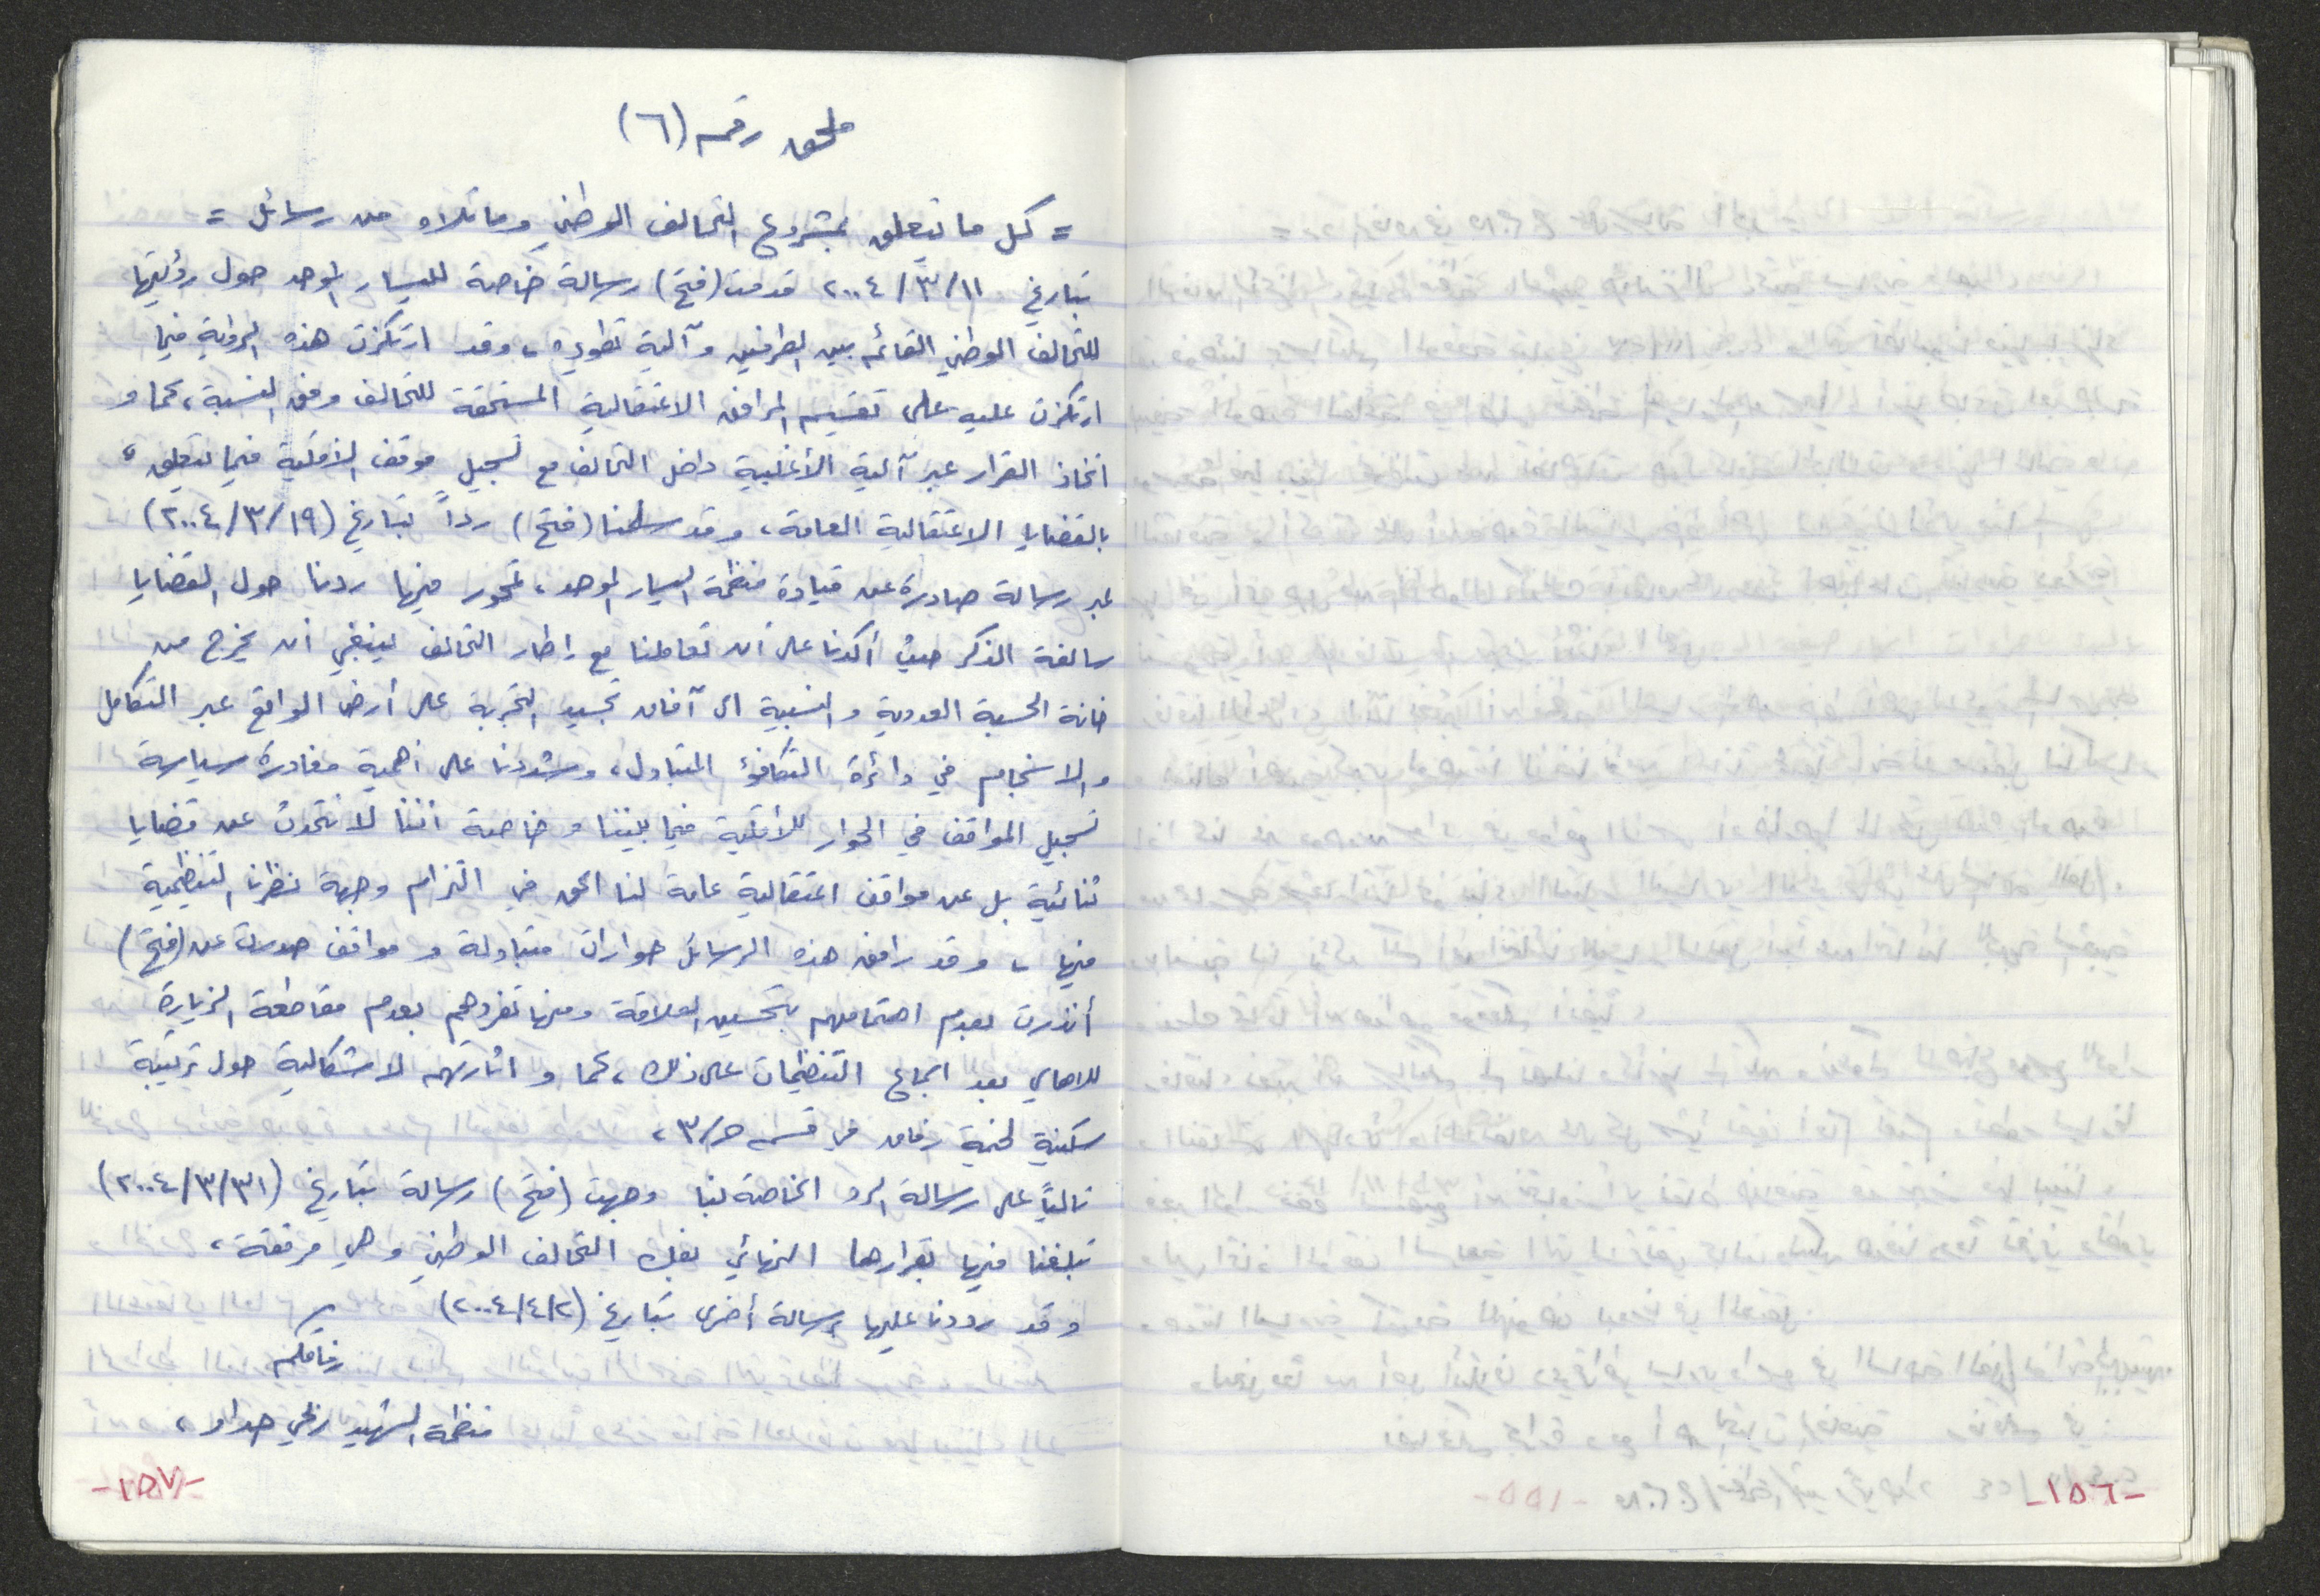 ملحق رقم (٦)
= كل ما يتعلق بمشروع التحالف الوطني وما تلاه من رسائل =
بتاريخ ٢٠٠٤/٣/١١ قدمت (فتح) رسالة خاصة لليسار الموحد حول رؤيتها
للتحالف الوطني القائم بين الطرفين وآلية تطويره، وقد ارتكزت هذه الرؤية فيما
ارتكزت عليه على تقسيم المرافق الاعتقالية المستحقة للتحالف وفق النسبة، كما و
اتخاذ القرار عبر آلية الأغلبية داخل التحالف مع تسجيل موقف الأقلية فيما يتعلق،
بالقضايا الاعتقالية العامة، وقد سلمنا (فتح) رداً بتاريخ (٢٠٠٤/٣/١٩)
عبر رسالة صادرة عن قيادة منظمة اليسار الموحد، تمحور فيها ردنا حول القضايا
سالفة الذكر حيث أكدنا على أن تعاملنا مع إطار التحالف ينبغي أن يخرج من
خانة الحسبة العددية والنسبية الى آفاق تجسيد التجربة على أرض الواقع عبر التكامل
والانسجام في دائرة التكافؤ المتبادل، وشددنا على أهمية مغادرة سياسة
تسجيل المواقف في الحوار للأقلية فيما بيننا وخاصة أننا لا نتحدث عن قضايا
ثنائية بل عن مواقف اعتقالية عامة لنا الحق في التزام وجهة نظرنا التنظيمية
فيها، وقد رافق هذه الرسائل حوارات متبادلة ومواقف صدرت عن (فتح)
أنذرت بعدم اهتمامهم بتحسين العلاقة ومنها تفردهم بعدم مقاطعة الزيارة
للاهالي بعد اجماع التنظيمات على ذلك، كما و اثارتهم لاشكالية حول تركيبة
سكنية لخيمة رفاق في قسم ج/٣،
تالياً على رسالة الرد الخاصة بنا وجهت (فتح) رسالة بتاريخ (٢٠٠٤/٣/٣١)
تبلغنا فيها بقرارها النهائي بفك التحالف الوطني وهي مرفقة،
وقد رددنا عليها برسالة أخرى بتاريخ (٢٠٠٤/٤/٢)
رفاقكم
منظمة الشهيد ربحي حداد،
-١٥٧-
-١٥٦-